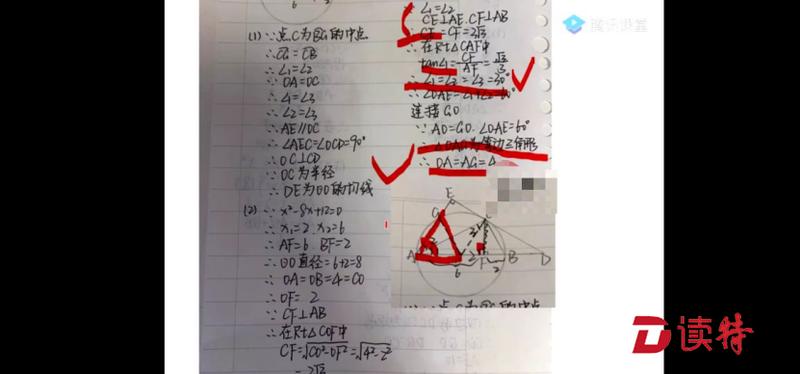 (1) ∵点C为BG的中点
∴CG=CB
∴∠1=∠2
∵OA=OC
∴∠1=∠3
∴∠2=∠3
∴AE∥OC
∴∠AEC=∠OCD=90°
∴OC⊥CD
∵OC为半径
∴DE为⊙O的切线
(2) ∵x²-8x+12=0
∴x₁=2 x₂=6
∴AF=6 BF=2
∴⊙O直径=6+2=8
∴OA=OB=4=CO
∴OF=2
∵CF⊥AB
∴在Rt△COF中
CF=√CO²-OF²=√4²-2²
=2√3
∵∠1=∠2
CE⊥AE.CF⊥AB
∴CE=CF=2√3
∴在Rt△CAF中
tan∠1=CF/AF=√3/3
∴∠1=∠2=∠3=30°
∴∠OAE=∠1+∠2=60°
连接GO
∵AO=GO.∠OAE=60°
∴△OAG为等边三角形
∴OA=AG=4
E
G
A
B
D
6
2
腾讯课堂
读特